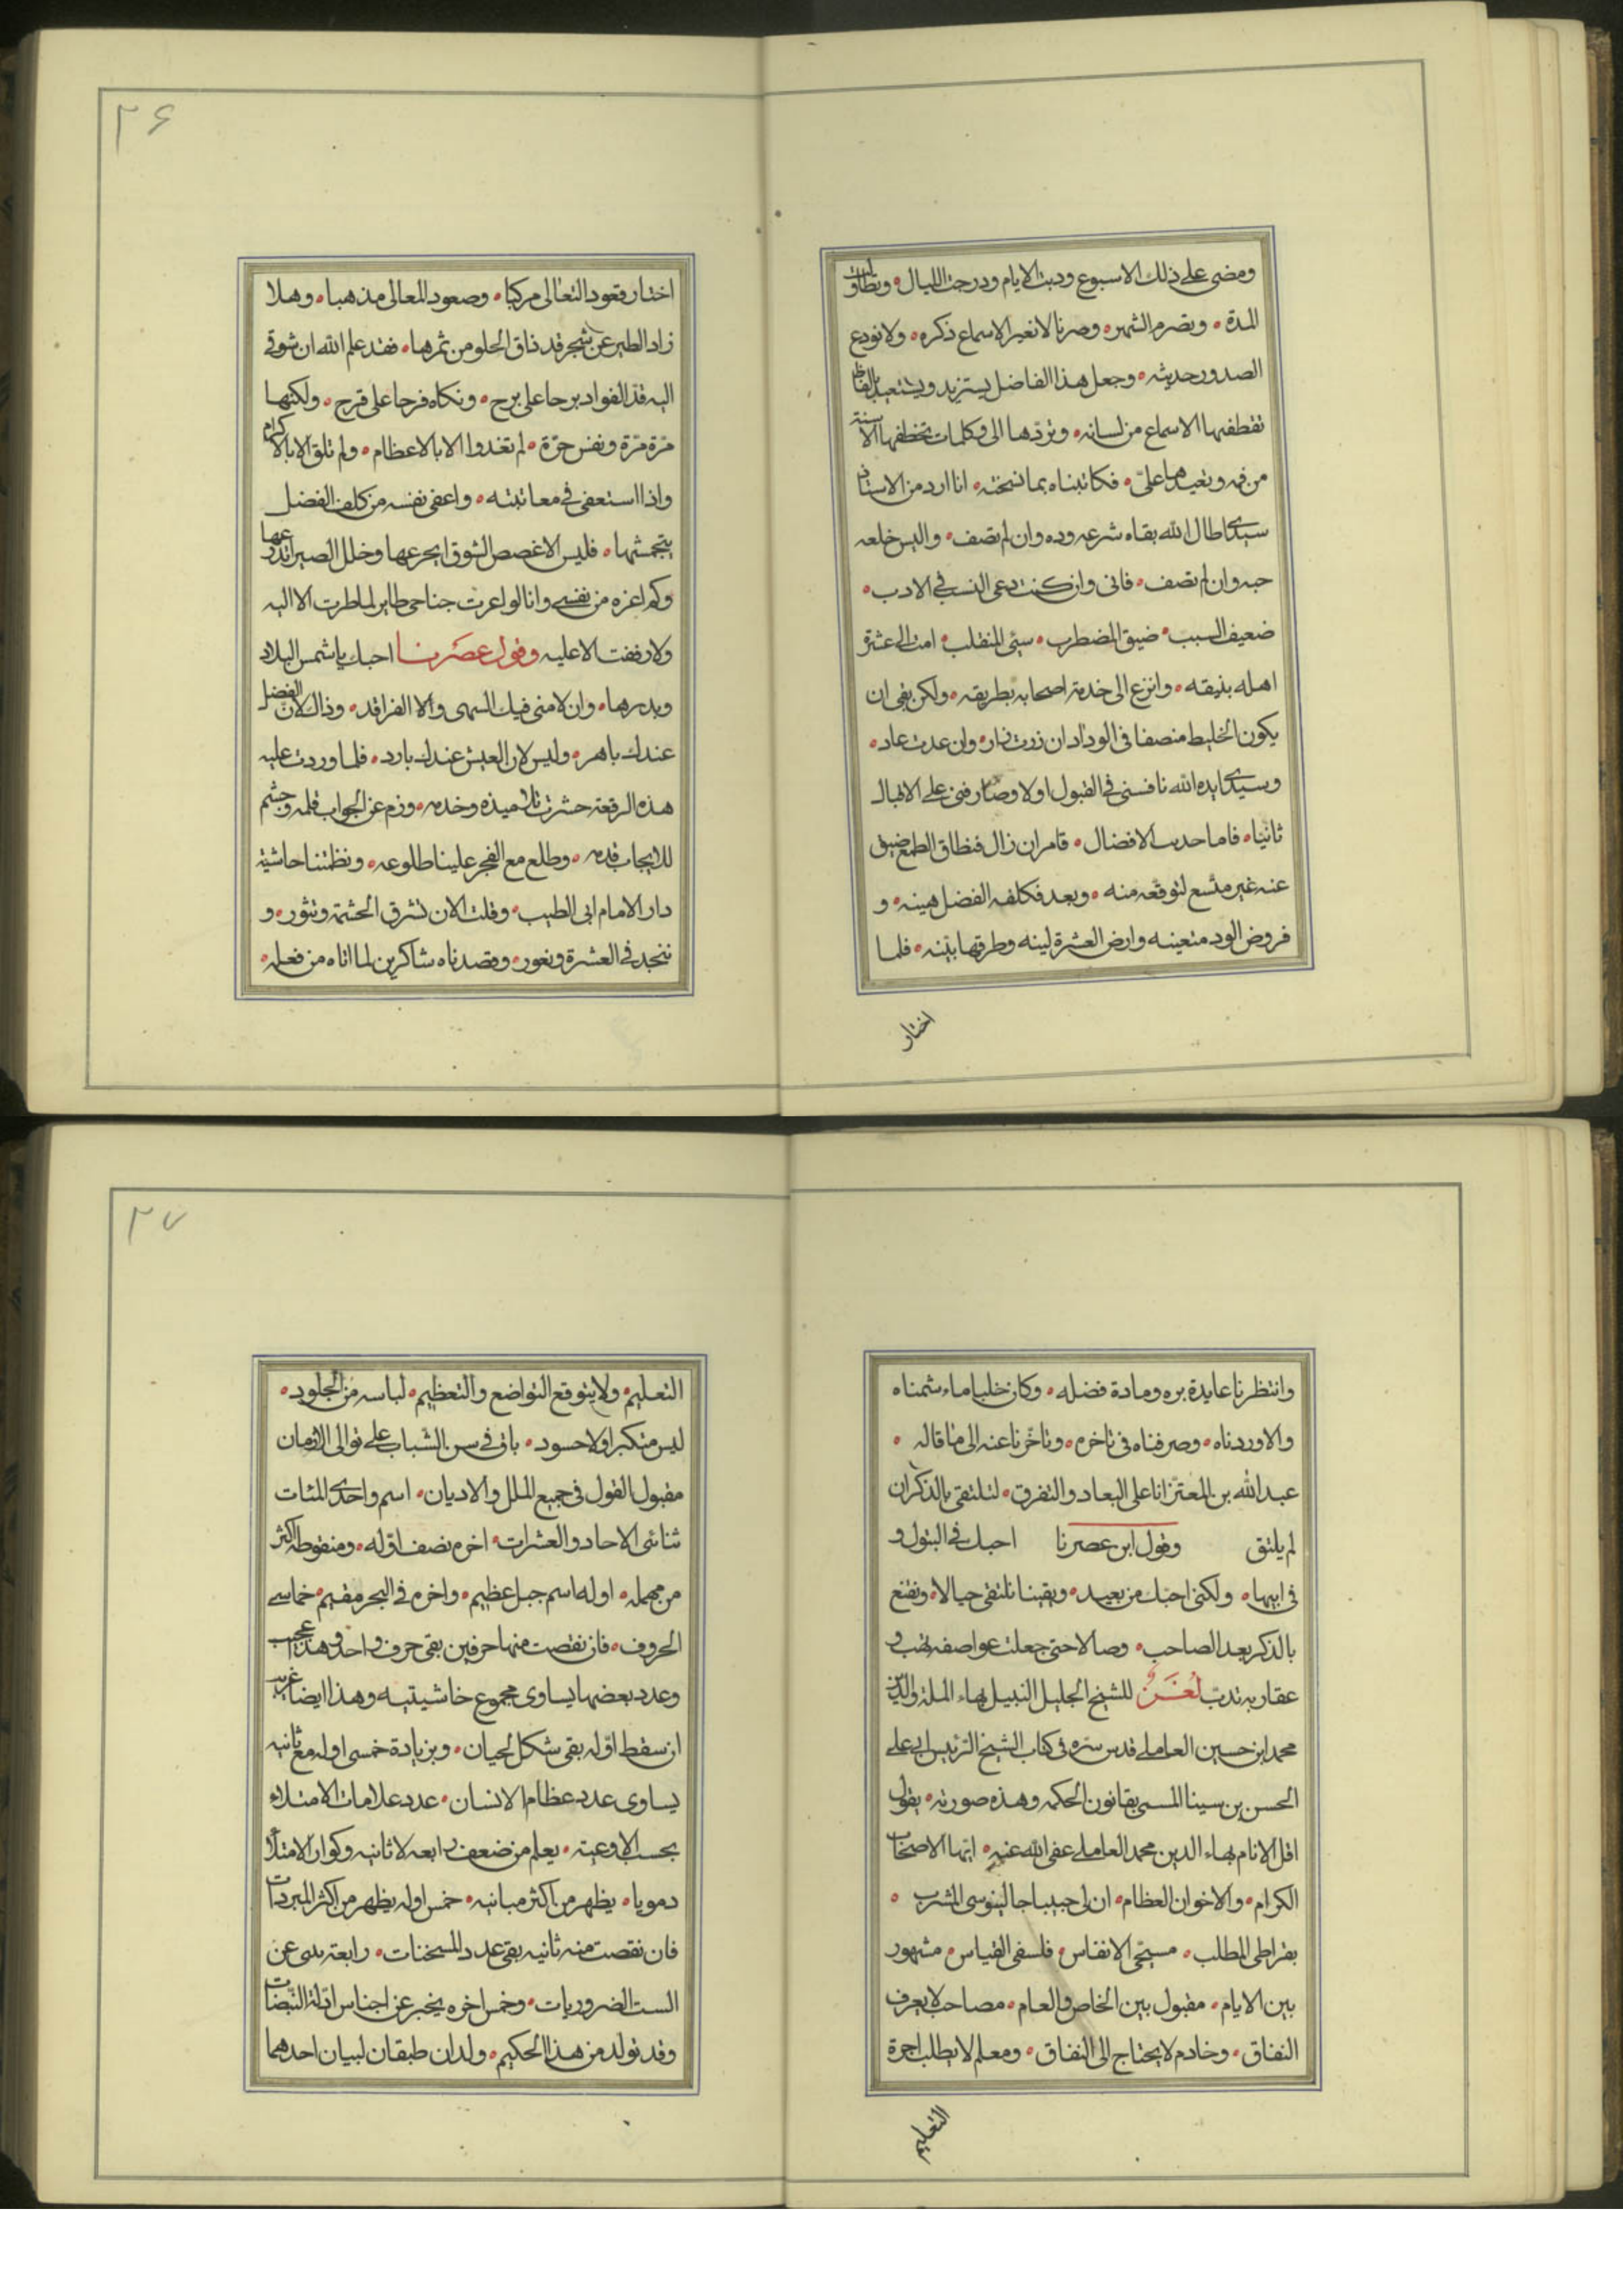 ومضى على ذلك الاسبوع ودبت الايام ودرجت الليال • وتطاولت
المدة • وتصرم الشهر • وصرنا لا نعير الاسماع ذكره • ولا نودع
الصدور حديثه • وجعل هذا الفاضل يستزيد ويستعيد بالفاظ
تقطفها الاسماع من لسانه • وتردها الى وكلمات تحفظها الالسنة
من فمه وتعيدها على • فكاتبناه بما نسخته • انا ارد من الاستاذ
سيدى اطال الله بقاه شرعه وده وان لم تصف • والبس خلعه
حبه وان لم تضف • فانى وان كنت دعى النسب فى الادب •
ضعيف السبب • ضيق المضطرب • سئى المنقلب • امت الى عشرة
اهله بنيقه • وانزع الى خدمة اصحابه بطريقه • ولكن بقى ان
يكون الخليط منصفا فى الوداد ان زرت زار • وان عدت عاد •
وسيدى ايده الله ناقسنى فى القبول اولا وصارفنى على الاقبال
ثانيا • فاما حديث الافضال • فامر ان زال فنطاق الطمع ضيق
عنه غير متسع لتوقعه منه • وبعد فكلفه الفضل هينه • و
فروض الود متعينه وارض العشرة لينه وطرقها بينه • فلما
اختار
٢۶
اختار قعود التعالى مركبا • وصعود المعالى مذهبا • وهلا
زاد الطير عن شجر قد ذاق الحلو من ثمرها • فقد علم الله ان شوقى
اليه قد الفواد برحا على برح • ونكاه قرحا على قرح • ولكنها
مرة مرة ونفس حرة • لم تغدوا الا بالاعظام • ولم تلق الا بالاكرام
واذا استعفى فى معاتبته • واعفى نفسه من كلف الفضل
يتجشمها • فليس الا غصص الشوق اتجرعها وخلل الصبر اتدرعها
وكم اعزه من نفسى وانا لو اعرت جناحى طاير لما طرت الا اليه
ولا رففت الا عليه وقول عصرنا احبك ياشمس البلاد
وبدرها • وان لامنى فيك السهى والا الفراقد • وذاك لان الفضل
عندك باهر • وليس لان العيش عندك بارد • فلما وردت عليه
هذه الرقعة حشرت تلاميذه وخدمه • وزم عن الجواب قلمه وجشم
للايجاب قدمه • وطلع مع الفجر علينا طلوعه • ونظمتنا حاشية
دار الامام ابى الطيب • وقلت الان تشرق الحشمة وتثور • و
ننجد فى العشرة ونغور • وقصدناه شاكرين لما اتاه من فعله •
وانتظرنا عايدة بره ومادة فضله • وكان خلبا ماء شمناه
والا وردناه • وصرفناه فى تاخره • وتاخرنا عنه الى ما قاله •
عبدالله بن المعتز انا على البعاد والتفرق • لنلتقى بالذكر ان
لم يلتق وقول ابن عصرنا احبك فى البتول و
فى ابيها • ولكنى احبك من بعيد • وبقينا نلتقى حيالا • ونقنع
بالذكر بعد الصاحب • وصالا حتى جعلت عواصفه تهب و
عقاربه تدب لغز للشيخ الجليل النبيل بهاء الملة والدين
محمد ابن حسين العاملى قدس سره فى كتاب الشيخ الرئيس ابى على
الحسن بن سينا المسمى بقانون الحكمه وهذه صورته • يقول
اقل الانام بهاء الدين محمد العاملى عفى الله عنه • ايها الاصحاب
الكرام • والاخوان العظام • ان لى حبيبا جالينوسى المشرب •
بقراطى المطلب • مسيحى الانفاس • فلسفى القياس • مشهور
بين الايام • مقبول بين الخاص والعام • مصاحب لا يعرف
النفاق • وخادم لا يحتاج الى النفاق • ومعلم لا يطلب اجرة
التعليم
٢٧
التعليم • ولا يتوقع التواضع والتعظيم • لباسه من الجلود •
ليس متكبرا ولا حسود • باق فى سن الشباب على توالى الازمان
مقبول القول فى جميع الملل والاديان • اسم واحدى المئات
ثنائى الاحاد والعشرات • اخره نصف اوله • ومنقوطه اكثر
من مهمله • اوله اسم جبل عظيم • واخره فى البحر مقيم • خماسى
الحروف • فان نقصت منها حرفين بقى حرف واحد وهذا عجيب
وعدد بعضها يساوى مجموع حاشيتيه وهذا ايضا غريب
ان سقط اوله بقى شكل لحيان • وبزيادة خمسى اوله مع ثانيه
يساوى عدد عظام الانسان • عدد علامات الامتلاء
بحسب الاوعية • يعلم من ضعف رابعه لا ثانيه وكوار الامتلا
دمويا • يظهر من اكثر مبانيه • خمس اوله يظهر من اكثر المبردات
فان نقصت منه ثانيه بقى عدد المسخنات • رابعه ينبى عن
الست الضروريات • وخمس اخره يخبر عن اجناس ادلة النبضات
وقد تولد من هذا الحكيم • ولدان طبقان لبيان احدهما